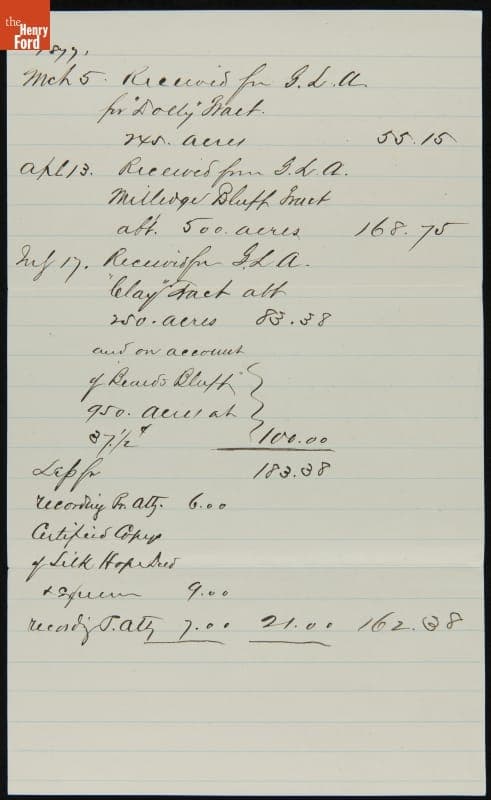 the
Henry
Ford
1877.
Mch 5. Received fm G. L. A.
for "Dolly" Tract.
245. acres 55.15
Apl 13. Received from G. L. A.
Milledge Bluff Tract
abt. 500. acres 168.75
July 17. Received fm G. L. A.
"Clay" Tract abt
250. acres 83.38
and on account
of Beards Bluff
950. acres at
37.1/2 ¢ 100.00
Less for 183.38
recording Pr. Atty. 6.00
Certified Copy
of Silk Hope Deed
9.00
recording P. Atty 7.00 21.00 162.38